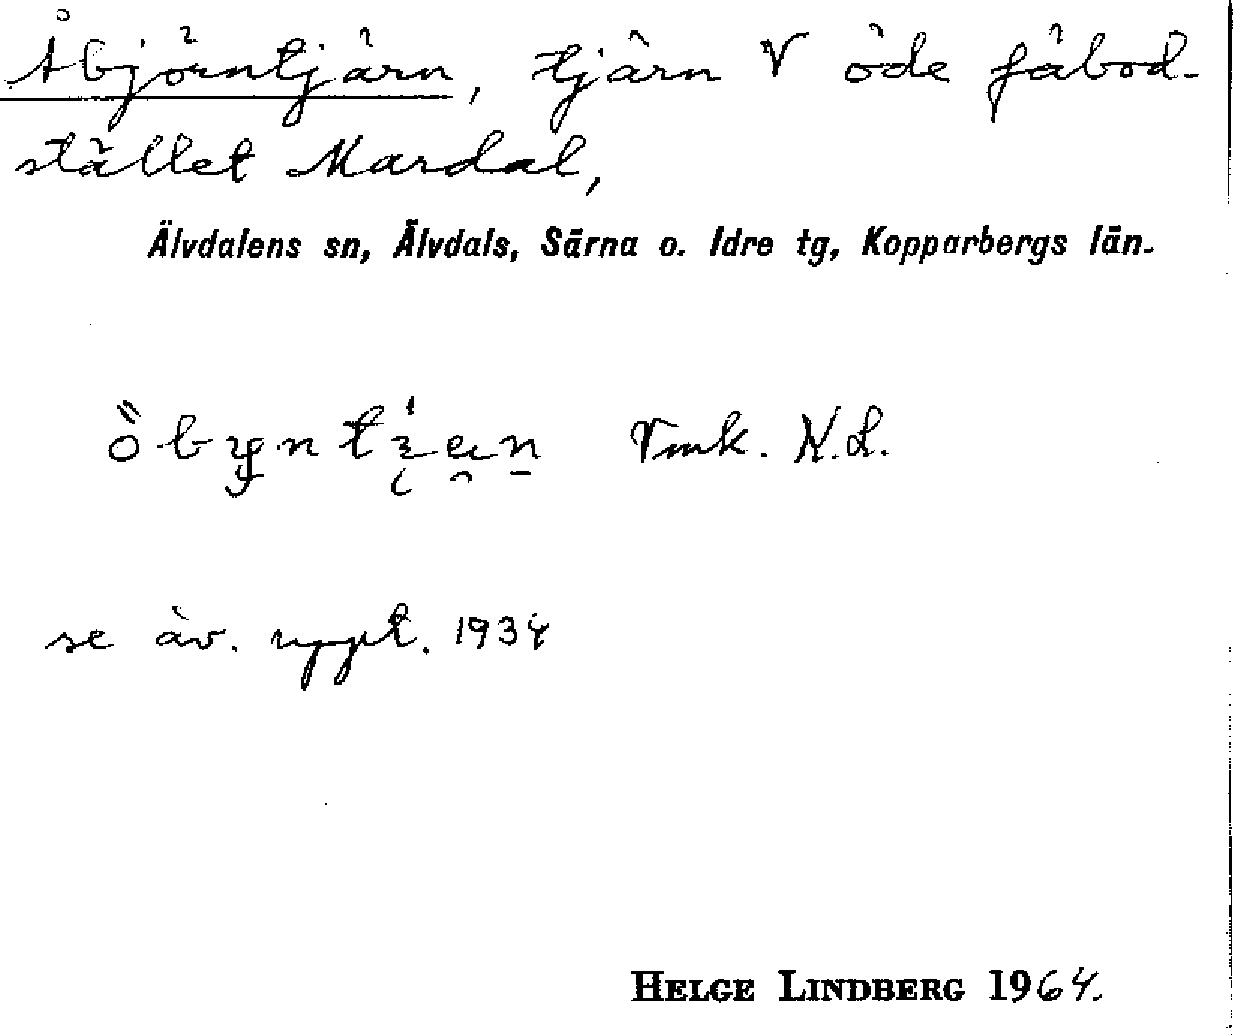 Åbjörntjärn, tjärn V öde fäbod-
stället Mardal,
Älvdalens sn, Älvdals, Särna o. Idre tg, Kopparbergs län.
Vmk. N.L.
se äv. uppt. 1934
HELGE LINDBERG 1964.